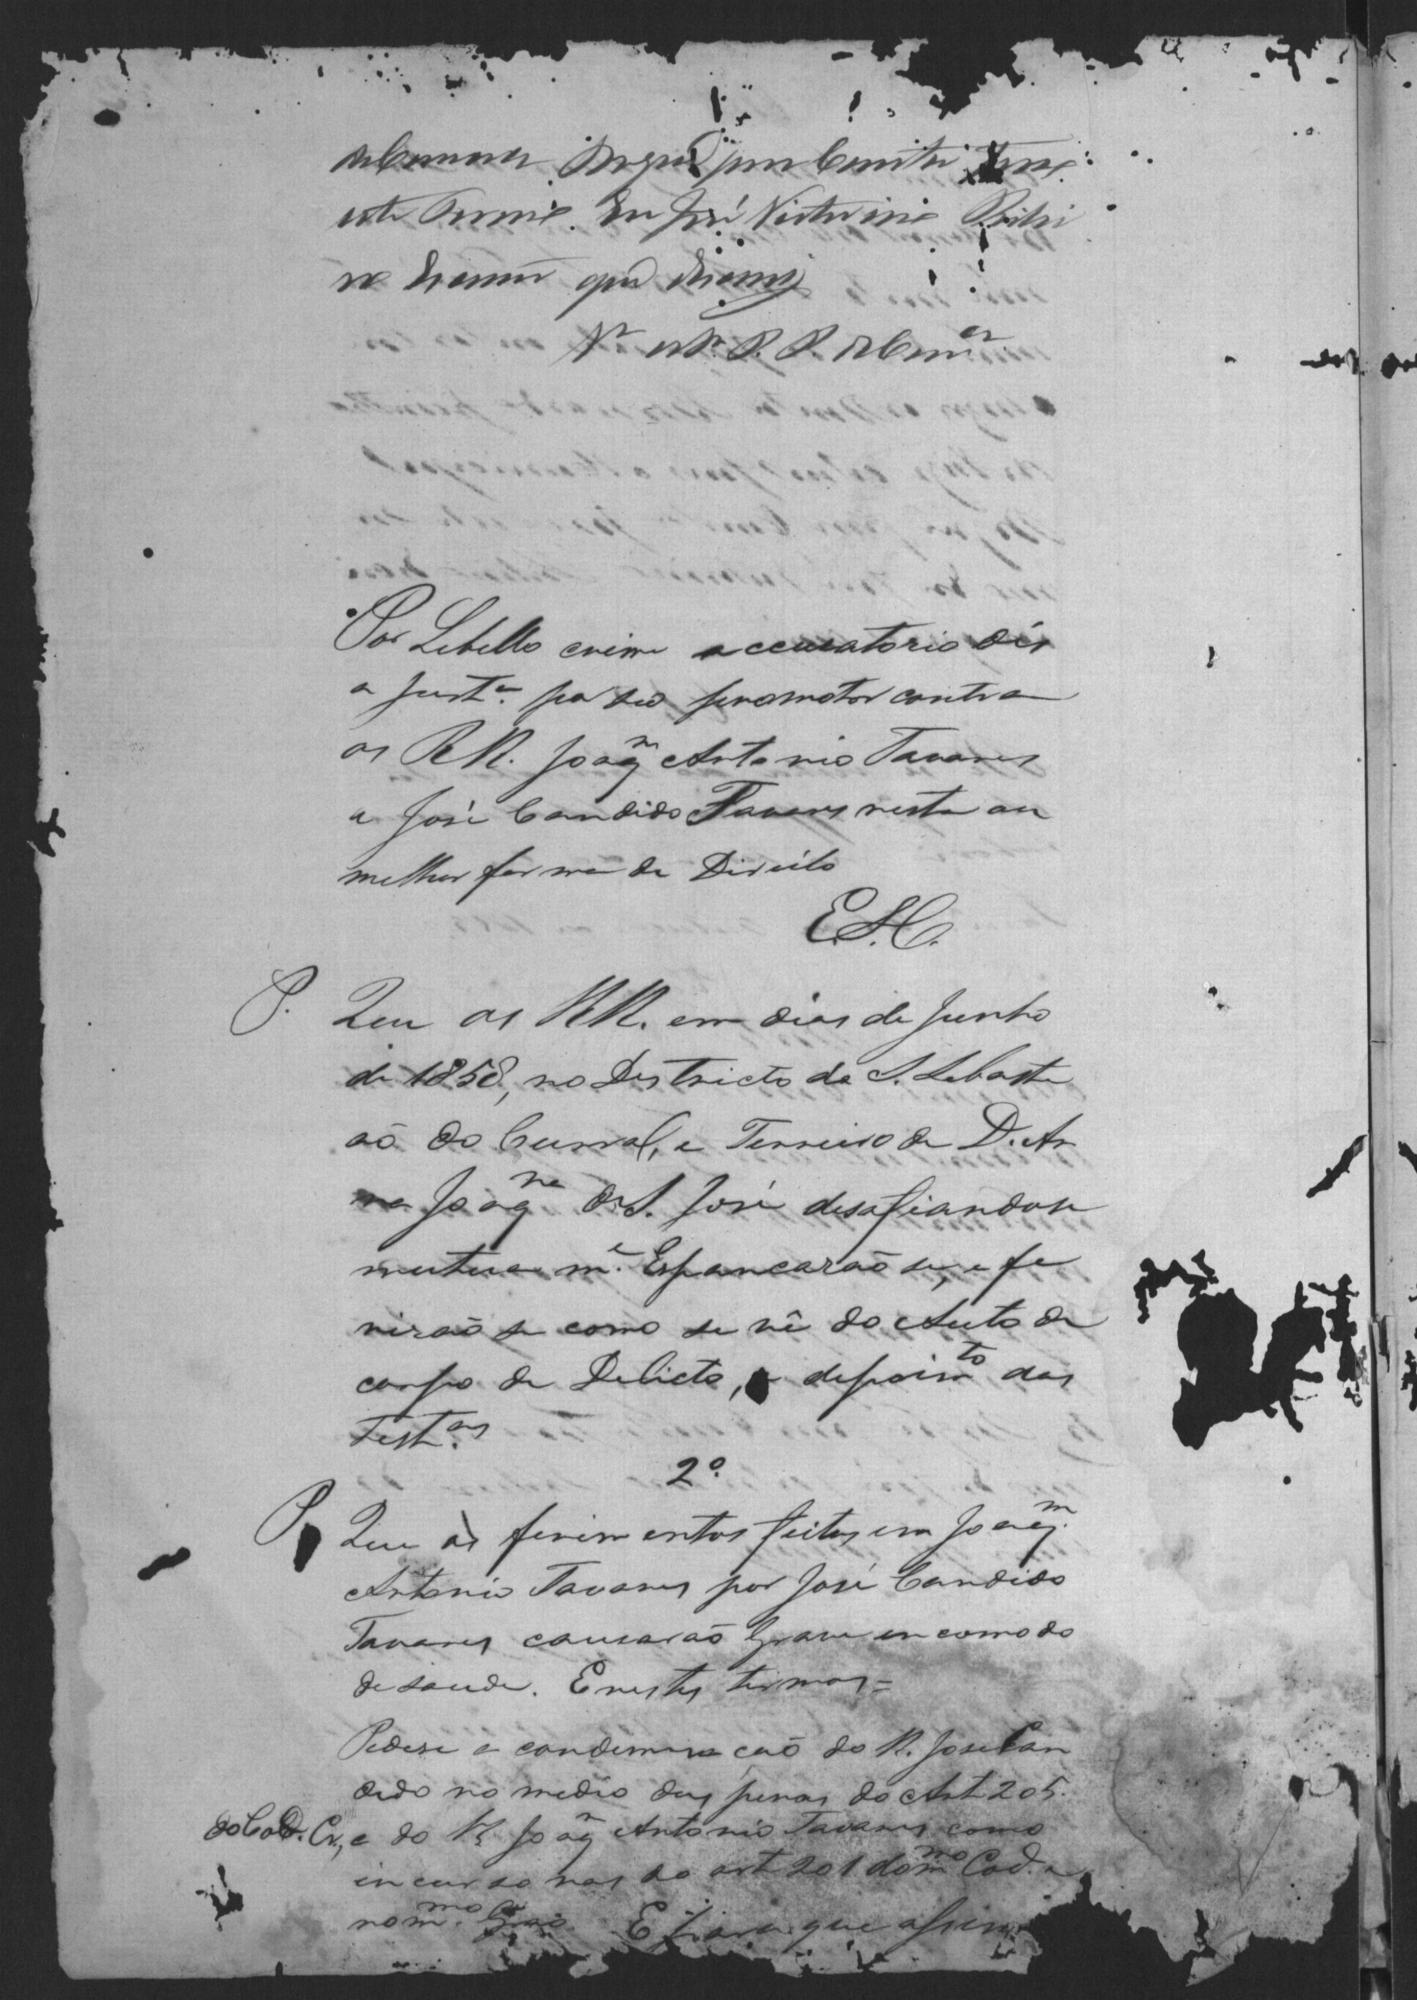 do que para constar faço
este termo. Eu José Victorino Ribei
ro Escrivão que escrevi
Por Libello crime accusatorio diz
a Just.ª por seo promotor contra
os RR. Joaq.m Antonio Tavares
e José Candido Tavares nesta ou
melhor forma de Direito
E.S.C.
P. Que os RR. em dias de Junho
de 1858, no Destricto de S. Sebasti
aõ do Curral, e Terreiro de D. An
na Joaq.na de S. José desafiandose
mutua m.e Espancaraõ se, e fe
riraõ se como se vê do Auto de
corpo de Delicto, e depoim.to das
Test.as
2º.
P. Que os ferimentos feitos em Joaq.m
Antonio Tavares por José Candido
Tavares causaraõ grave encomodo
de saude. E nestes termos=
Pedese a condemnaçaõ do R. José Can
dido no medio das penas do Art 205.
do Cod. Cr., e do R. Joaq.m Antonio Tavares como
incurso nas do art 201 do m.mo Cod. e
no m.mo Gráo. E para que assim